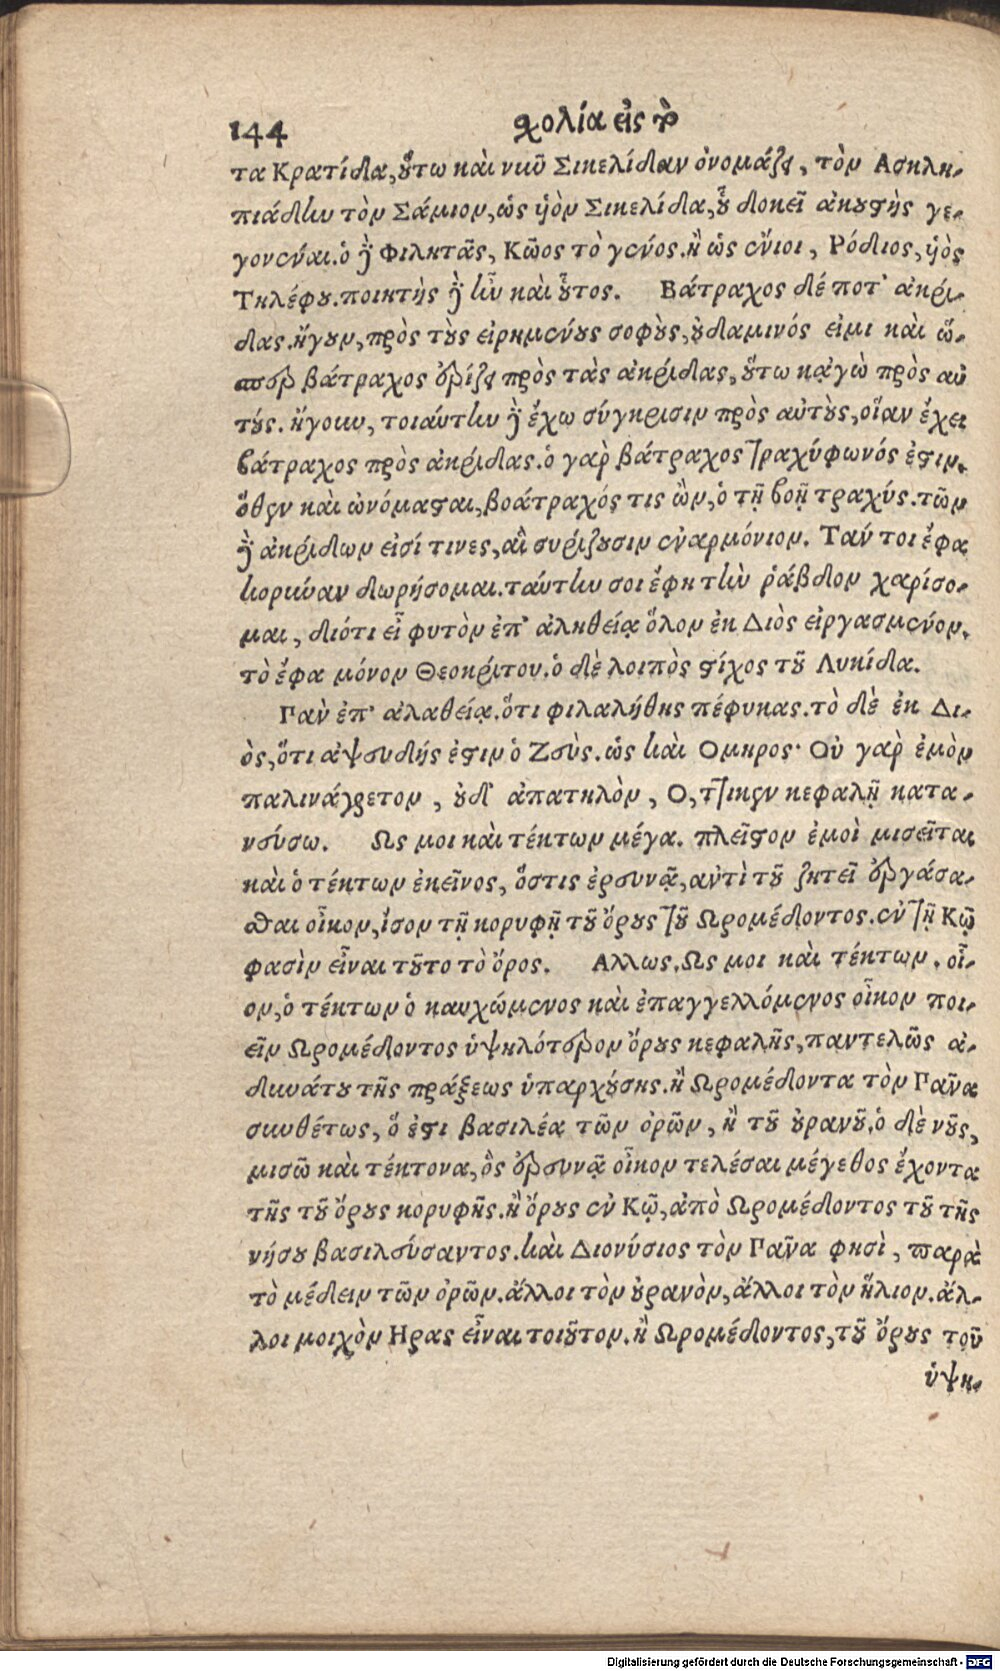 144 σχολία εἰς τὸ
τα Κρατίδα, οὕτω καὶ νῦν Σικελίδαν ὀνομάζει, τὸν Ασκλη-
πιάδην τὸν Σάμιον, ὡς υἱὸν Σικελίδα, οὗ δοκεῖ ἀκουστὴς γε-
γονέναι. ὁ δὲ Φιλητᾶς, Κῶος τὸ γένος. ἢ ὡς ἔνιοι, Ρόδιος, υἱὸς
Τηλέφου. ποιητὴς δὲ ἦν καὶ οὗτος. Βάτραχος δέ ποτ' ἀκρί-
δας. ἤγουν, πρὸς τοὺς εἰρημένους σοφοὺς, οὐδαμινός εἰμι καὶ ὥ-
σπερ βάτραχος ἐρίζει πρὸς τὰς ἀκρίδας, οὕτω κᾀγὼ πρὸς αὐ
τούς. ἤγουν, τοιαύτην δὲ ἔχω σύγκρισιν πρὸς αὐτοὺς, οἵαν ἔχει
βάτραχος πρὸς ἀκρίδας. ὁ γὰρ βάτραχος τραχύφωνός ἐστιν.
ὅθεν καὶ ὠνόμασται, βοάτραχός τις ὢν, ὁ τῇ βοῇ τραχύς. τῶν
δὲ ἀκρίδων εἰσί τινες, αἳ συρίζουσιν ἐναρμόνιον. Τάν τοι ἔφα
κορύναν δωρήσομαι. ταύτην σοι ἔφη τὴν ῥάβδον χαρίσο-
μαι, διότι εἶ φυτὸν ἐπ' ἀληθείᾳ ὅλον ἐκ Διὸς εἰργασμένον.
τὸ ἔφα μόνον Θεοκρίτου. ὁ δὲ λοιπὸς στίχος τοῦ Λυκίδα.
Παν ἐπ' ἀλαθείᾳ. ὅτι φιλαλήθης πέφυκας. τὸ δὲ ἐκ Δι-
ὸς, ὅτι ἀψευδής ἐστιν ὁ Ζεὺς. ὡς καὶ Ομηρος· Οὐ γὰρ ἐμὸν
παλινάγρετον, οὐδ' ἀπατηλὸν, Ο, τι κεν κεφαλῇ κατα-
νεύσω. Ως μοι καὶ τέκτων μέγα. πλεῖστον ἐμοὶ μισεῖται
καὶ ὁ τέκτων ἐκεῖνος, ὅστις ἐρευνᾷ, ἀντὶ τοῦ ζητεῖ ἐργάσα-
σθαι οἶκον, ἴσον τῇ κορυφῇ τοῦ ὄρους τοῦ Ωρομέδοντος. ἐν τῇ Κῷ
φασὶν εἶναι τοῦτο τὸ ὄρος. Αλλως. Ως μοι καὶ τέκτων. οἷ-
ον, ὁ τέκτων ὁ καυχώμενος καὶ ἐπαγγελλόμενος οἶκον ποι-
εῖν Ωρομέδοντος ὑψηλότερον ὄρους κεφαλῆς, παντελῶς ἀ-
δυνάτου τῆς πράξεως ὑπαρχούσης. ἢ Ωρομέδοντα τὸν Πᾶνα
συνθέτως, ὅ ἐστι βασιλέα τῶν ὀρῶν, ἢ τοῦ οὐρανοῦ. ὁ δὲ νοῦς,
μισῶ καὶ τέκτονα, ὃς ἐρευνᾷ οἶκον τελέσαι μέγεθος ἔχοντα
τῆς τοῦ ὄρους κορυφῆς. ἢ ὄρους ἐν Κῷ, ἀπὸ Ωρομέδοντος τοῦ τῆς
νήσου βασιλεύσαντος. καὶ Διονύσιος τὸν Πᾶνα φησὶ, παρὰ
τὸ μέδειν τῶν ὀρῶν. ἄλλοι τὸν οὐρανὸν, ἄλλοι τὸν ἥλιον. ἄλ-
λοι μοιχὸν Ηρας εἶναι τοιοῦτον. ἢ Ωρομέδοντος, τοῦ ὄρους τοῦ
ὑψη-
Digitalisierung gefördert durch die Deutsche Forschungsgemeinschaft - DFG